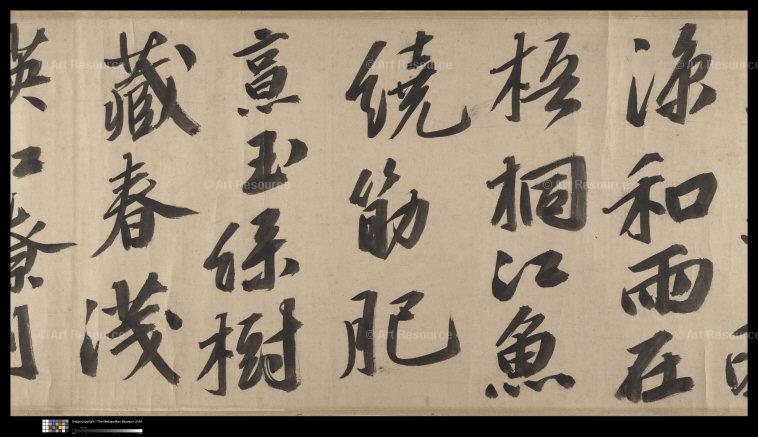 涼和雨在
梧桐江魚
繞筋肥
玉樹
藏春淺
© Art Resource
© Art Resource
© Art Resource
© Art Resource
© Art Resource
© Art Resource
© Art Resource
© Art Resource
© Art Resource
Image copyright © The Metropolitan Museum of Art